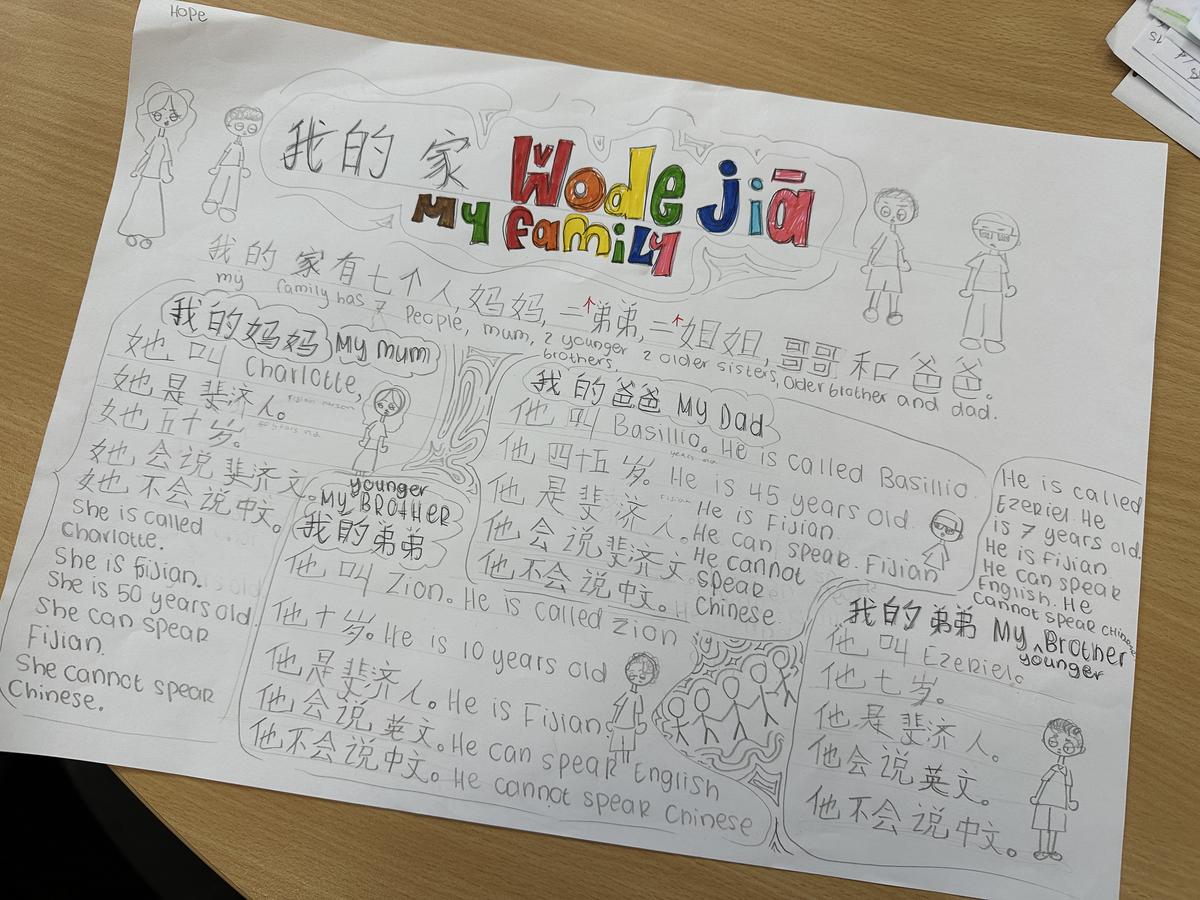 HOPE
我的 家 Wǒde jiā
My family
我的 家有七个人,妈妈,二个弟弟,二个姐姐,哥哥和爸爸。
my family has 7 People, mum, 2 younger brothers, 2 older sisters, Older brother and dad.
我的妈妈 My mum
她 叫 Charlotte,
她是斐济人。
Fijian person
她五十岁。
她会说斐济文。
她不会说中文。
She is called
Charlotte.
She is fijian.
She is 50 years old.
She can spear
Fijian.
She cannot spear
Chinese.
younger
MY BROTHER
我的弟弟
他 叫 Zion. He is called Zion
他十岁。He is 10 years old
他是斐济人。He is Fijian.
他会说英文。He can spear English
他不会说中文。He cannot spear Chinese
我的爸爸 My Dad
他 叫 Basillio. He is called Basillio.
years old
他四十五岁。He is 45 years old.
Fijian
他是斐济人。He is Fijian.
他会说斐济文。He can spear Fijian
他不会说中文。He cannot
spear
Chinese.
He is called
Ezeriel. He
is 7 years old.
He is Fijian
He can spear
English. He
cannot spear chinese
我的弟弟 My younger Brother
他 叫 Ezeriel。
他七岁。
他是斐济人。
他会说英文。
他不会说中文。